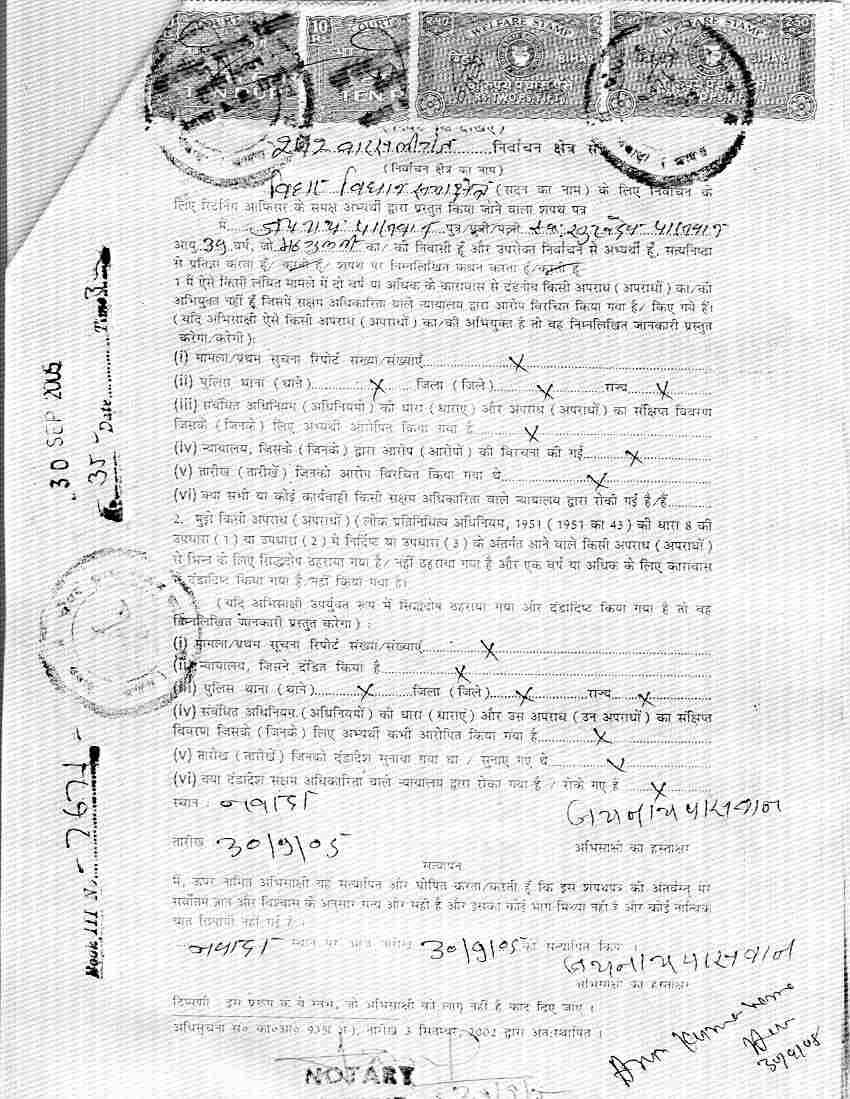 COURT
COURT
10
WELFARE STAMP
BIHAR
WELFARE STAMP
BIHAR
250
निर्वाचन क्षेत्र से
(निर्वाचन क्षेत्र का नाम)
(सदन का नाम) के लिए निर्वाचन के
लिए रिटर्निंग आफिसर के समक्ष अभ्यर्थी द्वारा प्रस्तुत किया जाने वाला शपथ पत्र
में पुत्र/पुत्री/पत्नी पासवान
आयु 39 वर्ष, जो का/ की निवासी हूँ और उपरोक्त निर्वाचन से अभ्यर्थी हूँ, सत्यनिष्ठा
से प्रतिज्ञा करता हूँ/ करती हूँ/ शपथ पर निम्नलिखित कथन करता हूँ/करती हूँ
1 में ऐसे किसी लंबित मामले में दो वर्ष या अधिक के कारावास से दंडनीय किसी अपराध (अपराधों) का/की
अभियुक्त नहीं हूँ जिसमें सक्षम अधिकारिता वाले न्यायालय द्वारा आरोप विरचित किया गया है/ किए गये हैं।
(यदि अभिसाक्षी ऐसे किसी अपराध (अपराधों) का/की अभियुक्त है तो वह निम्नलिखित जानकारी प्रस्तुत
करेगा/करेगी):
(i) मामला/प्रथम सूचना रिपोर्ट संख्या/संख्याएँ X
(ii) पुलिस थाना (थाने) X जिला (जिले) X राज्य X
(iii) संबंधित अधिनियम (अधिनियमों) की धारा (धाराएं) और अपराध (अपराधों) का संक्षिप्त विवरण
जिसके (जिनके) लिए अभ्यर्थी आरोपित किया गया है X
(iv) न्यायालय, जिसके (जिनके) द्वारा आरोप (आरोपों) की विरचना की गई X
(v) तारीख (तारीखें) जिनको आरोप विरचित किया गया थे X
(vi) क्या सभी या कोई कार्यवाही किसी सक्षम अधिकारिता वाले न्यायालय द्वारा रोकी गई है/हैं
2. मुझे किसी अपराध (अपराधों) (लोक प्रतिनिधित्व अधिनियम, 1951 (1951 का 43) की धारा 8 की
उपधारा (1) या उपधारा (2) में निर्दिष्ट या उपधारा (3) के अंतर्गत आने वाले किसी अपराध (अपराधों)
से भिन्न के लिए सिद्धदोष ठहराया गया है/ नहीं ठहराया गया है और एक वर्ष या अधिक के लिए कारावास
से दंडादिष्ट किया गया है/नहीं किया गया है।
(यदि अभिसाक्षी उपर्युक्त रूप में सिद्धदोष ठहराया गया और दंडादिष्ट किया गया है तो वह
निम्नलिखित जानकारी प्रस्तुत करेगा) :
(i) मामला/प्रथम सूचना रिपोर्ट संख्या/संख्याएँ X
(ii) न्यायालय, जिसने दंडित किया है X
(iii) पुलिस थाना (थाने) X जिला (जिले) X राज्य X
(iv) संबंधित अधिनियम (अधिनियमों) की धारा (धाराएं) और उस अपराध (उन अपराधों) का संक्षिप्त
विवरण जिसके (जिनके) लिए अभ्यर्थी कभी आरोपित किया गया है X
(v) तारीख (तारीखें) जिनको दंडादेश सुनाया गया था / सुनाए गए थे X
(vi) क्या दंडादेश सक्षम अधिकारिता वाले न्यायालय द्वारा रोका गया है / रोके गए है X
स्थान : नवादा
जयनाथ पासवान
तारीख 30/9/05
अभिसाक्षी का हस्ताक्षर
सत्यापन
में, ऊपर नामित अभिसाक्षी यह सत्यापित और घोषित करता/करती हूँ कि इस शपथपत्र की अंतर्वस्तु मेरे
सर्वोत्तम ज्ञान और विश्वास के अनुसार सत्य और सही है और इसका कोई भाग मिथ्या नहीं है और कोई तात्विक
बात छिपायी नहीं गई है।
नवादा स्थान पर आज तारीख 30/9/05 को सत्यापित किया ।
जयनाथ पासवान
अभिसाक्षी का हस्ताक्षर
टिप्पणी : इस प्ररूप के वे स्तंभ, जो अभिसाक्षी को लागू नहीं है काट दिए जाएं ।
अधिसूचना सं० का०आ० 935( अ), तारीख 3 सितम्बर, 2002 द्वारा अंत:स्थापित ।
30/9/05
NOTARY
30 SEP 2005
35 Date Time 3
Book III No 7671